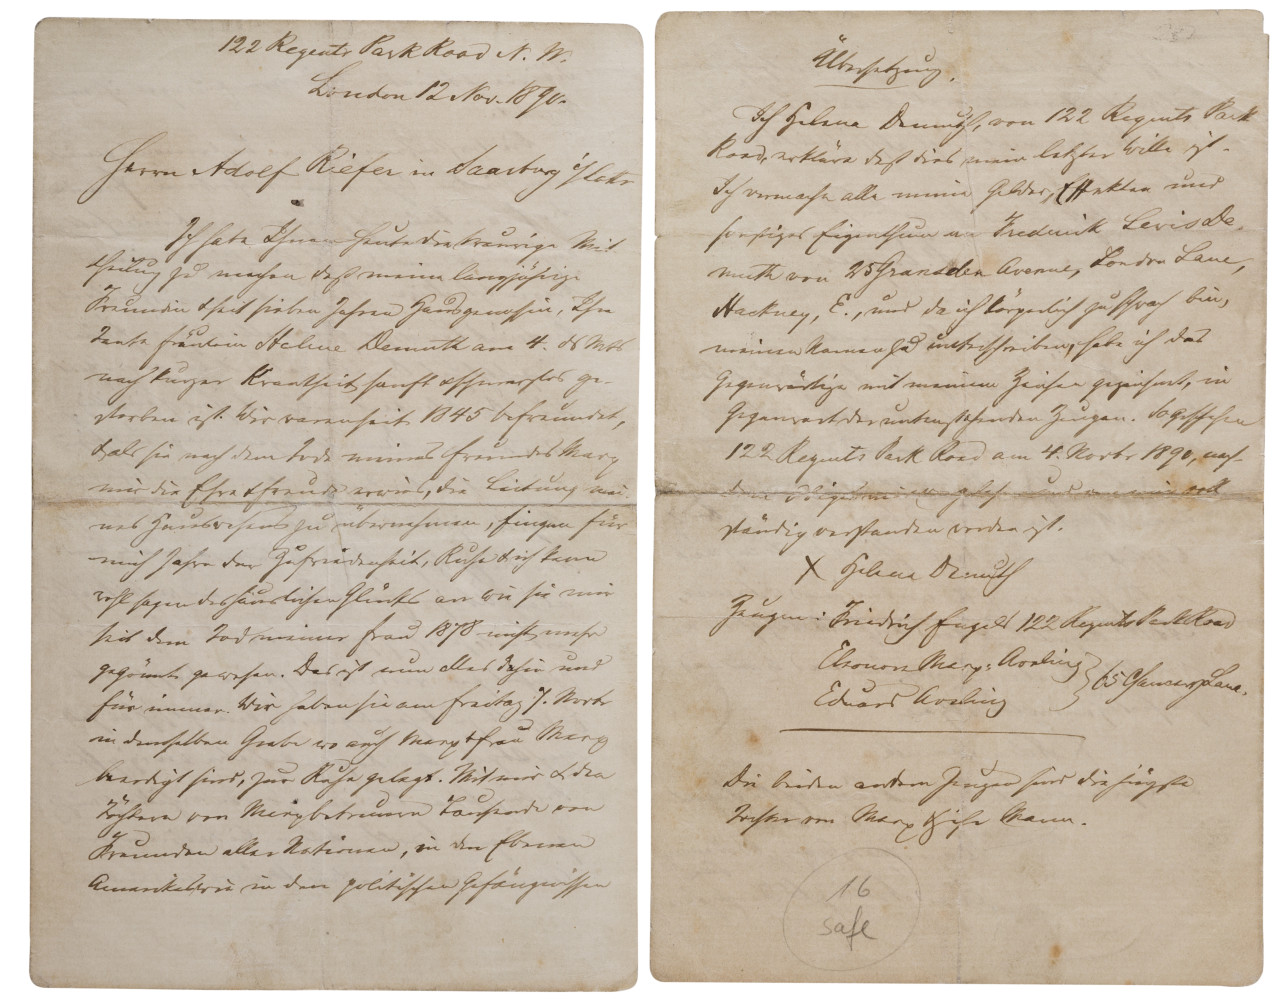 122 Regents Park Road N. W.
London 12 Nov. 1890.
Herrn Adolf Riefer in Saarburg i/Lothr
Ich habe Ihnen heute die traurige Mit
theilung zu machen daß meine langjährige
Freundin & seit sieben Jahren Hausgenossin, Ihre
Tante Fräulein Helene Demuth am 4. ds Mts
nach kurzer Krankheit sanft & schmerzlos ge-
storben ist. Wir waren seit 1845 befreundet,
& als sie nach dem Tode meines Freundes Marx
mir die Ehre & Freude erwies, die Leitung mei-
nes Hauswesens zu übernehmen, fingen für
mich Jahre der Zufriedenheit, Ruhe & ich kann
wohl sagen des häuslichen Glücks an wie sie mir
seit dem Tod meiner Frau 1878 nicht mehr
gegönnt gewesen. Das ist nun alles dahin und
für immer. Wir haben sie am Freitag 7. Novbr
in demselben Grabe wo auch Marx & Frau Marx
beerdigt sind, zur Ruhe gelegt. Mit mir & den
Töchtern von Marx betrauern Tausende von
Freunden aller Nationen, in den Ebenen
Amerikas wie in den politischen Gefängnissen
Übersetzung.
Ich Helena Demuth, von 122 Regents Park
Road, erkläre daß dies mein letzter Wille ist.
Ich vermache alle meine Gelder, Effekten und
sonstiges Eigenthum an Frederick Lewis De-
muth von 25 Gransden Avenue, London Lane,
Hackney, E., und da ich körperlich zu schwach bin,
meinen Namen zu unterschreiben, habe ich das
Gegenwärtige mit meinem Zeichen gezeichnet, in
Gegenwart der untenstehenden Zeugen. So geschehen
122 Regents Park Road am 4. Novbr 1890, nach-
dem Obiges mir vorgelesen und von mir voll
ständig verstanden worden ist.
X Helena Demuth
Zeugen: Friedrich Engels 122 Regents Park Road
Eleonore Marx-Aveling
Eduard Aveling } 65 Chancery Lane.
Die beiden andern Zeugen sind die jüngste
Tochter von Marx & ihr Mann.
16
safe